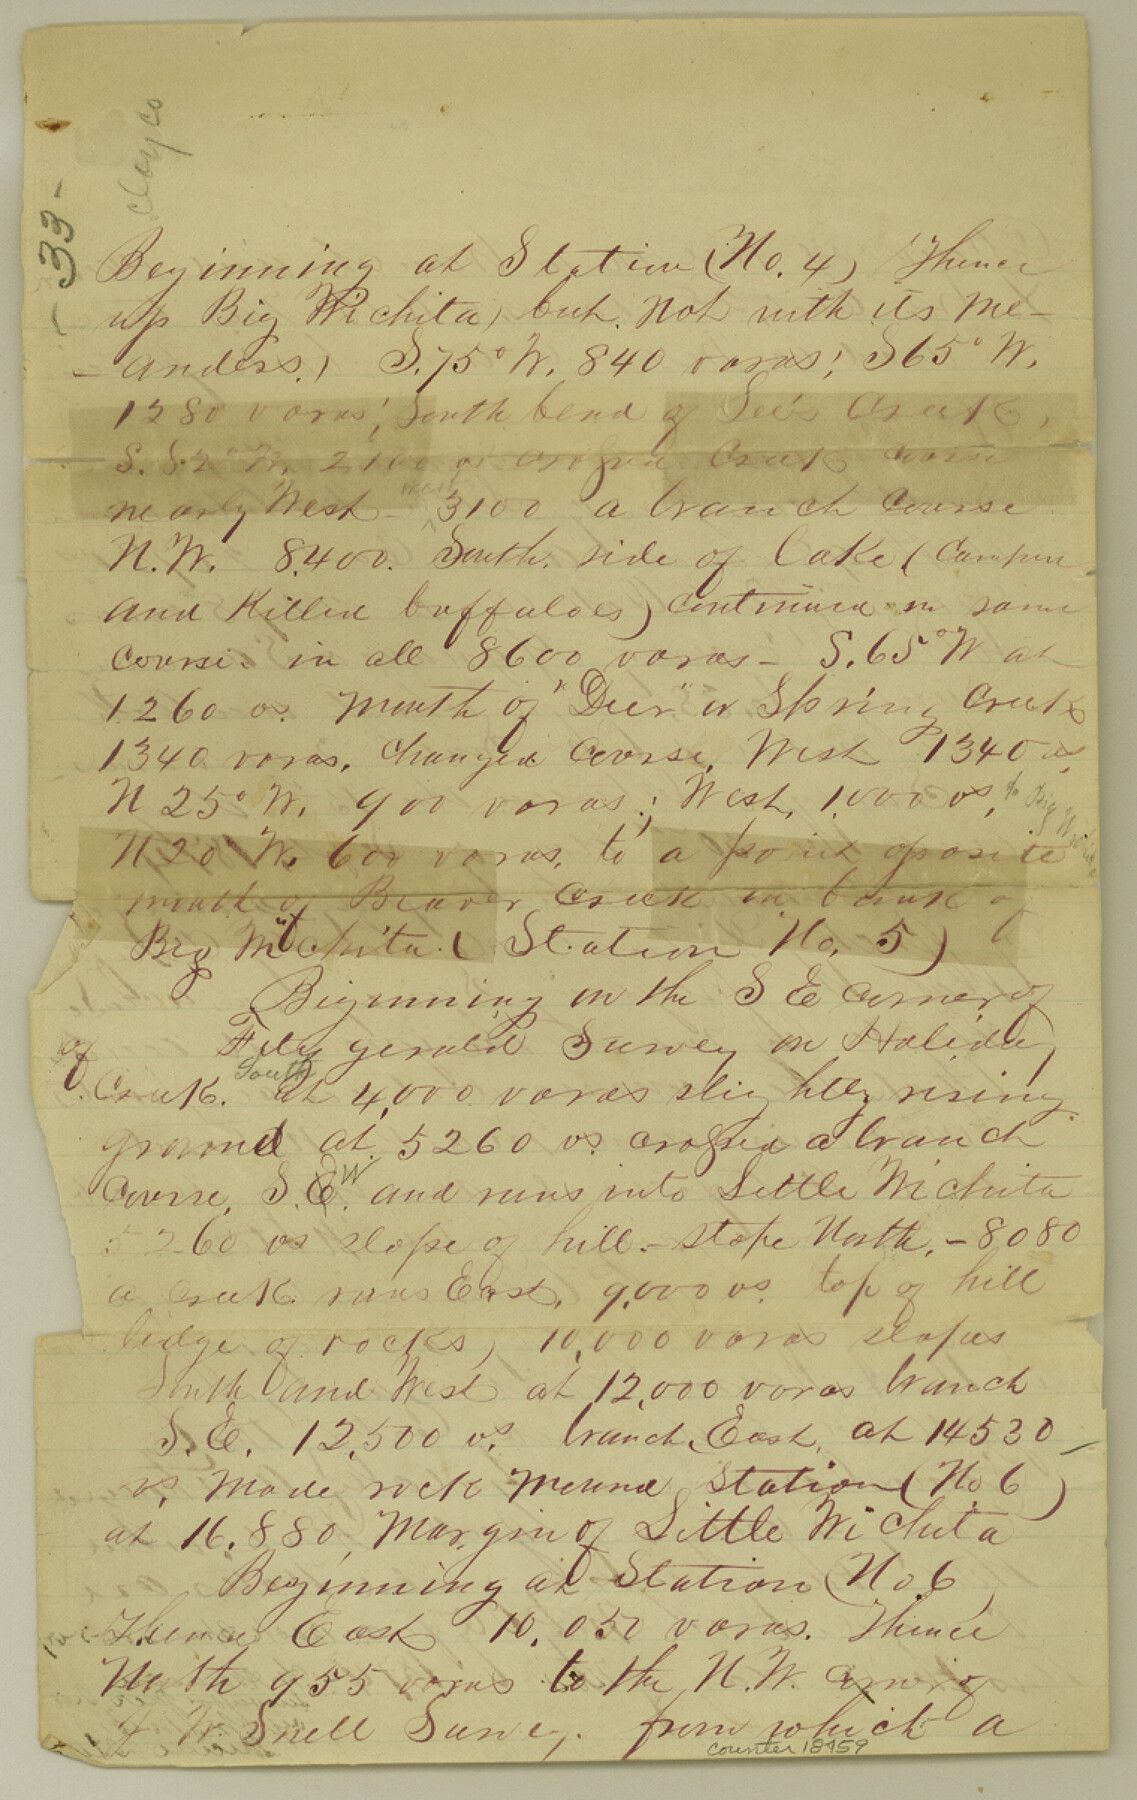 - 33 -
Clay Co
Beginning at Station (No. 4) Thence
up Big Wichita, but not with its me-
anders.) S. 75° W. 840 varas; S 65° W.
1280 varas; South bend of Creek,
S. 52° W. 2100 vs crossed Creek course
nearly West - 3100 a branch course
N.W. 8,400. South side of Lake (Campen
and Killed buffaloes) continued in same
course. in all 8600 varas - S. 65° W at
1260 vs. Mouth of "Deer" or Spring Creek
1340 varas, changed course, West 1340 vs,
N 25° W, 900 varas; West, 1,000 vs, to Big Wichita
N 20° W. 600 varas, to a point oposite
mouth of Beaver Creek on bank of
Big Wichita. (Station No. 5)
Beginning on the S E corner of
of Fitzgerald Survey on Holiday
Creek. South at 4,000 varas slightly rising
ground at 5260 vs. crossed a branch
course, S. E. W and runs into Little Wichita
5260 vs slope of hill - slope North, - 8080
a creek runs East, 9,000 vs. top of hill
ledge of rocks, 10,000 varas slopes
South and West at 12,000 varas branch
S. E. 12,500 vs. branch, East, at 14530
vs, made rock mound Station (No 6)
at 16,880, Margin of Little Wichita
Beginning at Station (No 6)
Thence East 10,050 varas. Thence
North 955 varas to the N.W. corner of
W. Snell Survey. from which a
counter 18459